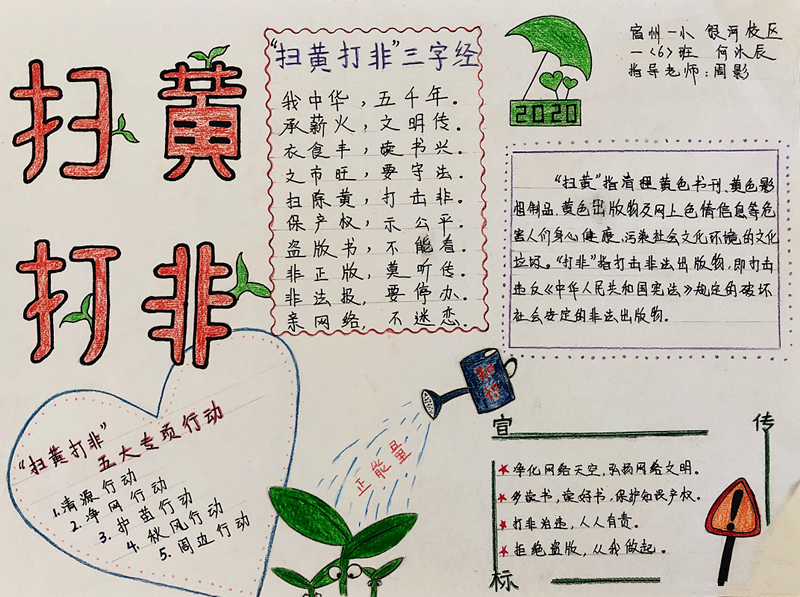 扫黄
打非
“扫黄打非”三字经
我中华，五千年。
承薪火，文明传。
衣食丰，读书兴。
文市旺，要守法。
扫除黄，打击非。
保产权，示公平。
盗版书，不能看。
非正版，莫听传。
非法报，要停办。
亲网络，不迷恋
2020
宿州一小 银河校区
一〈6〉班 何沐辰
指导老师：周影
“扫黄”指清理黄色书刊、黄色影
相制品、黄色出版物及网上色情信息等危
害人们身心健康、污染社会文化环境的文化
垃圾。“打非”指打击非法出版物，即打击
违反《中华人民共和国宪法》规定的破坏
社会安定的非法出版物。
“扫黄打非”
五大专项行动
1.清源行动
2.净网行动
3.护苗行动
4.秋风行动
5.周边行动
知识
正能量
宣
传
★净化网络天空，弘扬网络文明。
★多读书，读好书，保护知识产权。
★打非治违，人人有责。
★拒绝盗版，从我做起。
标